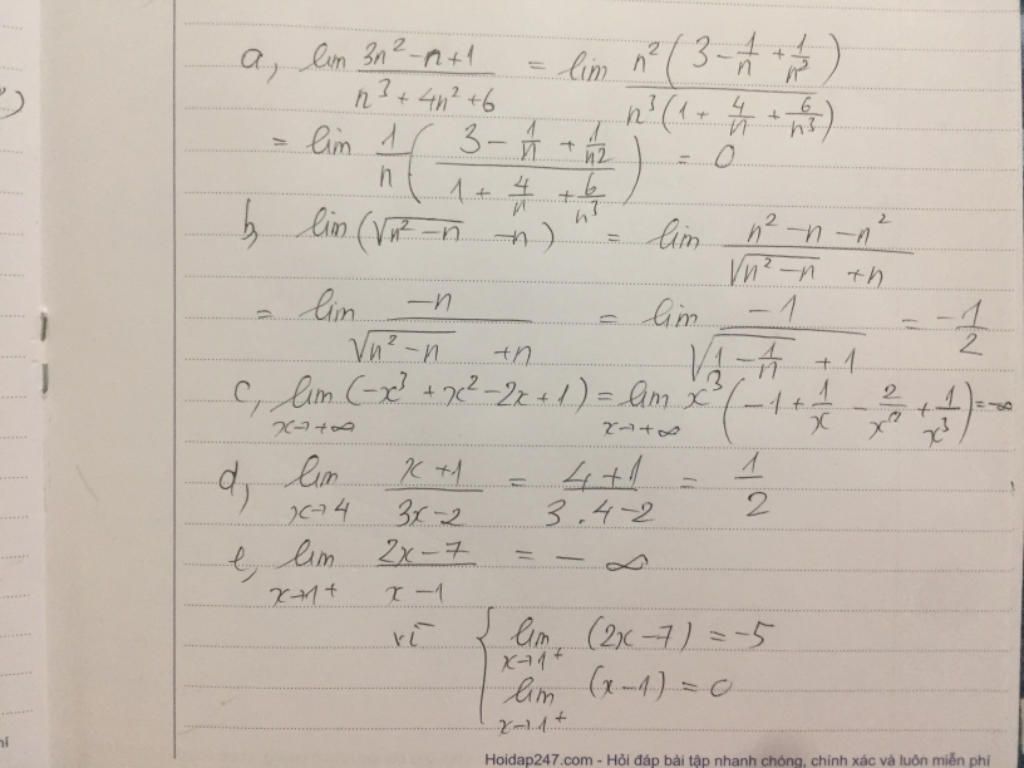 a, lim (3n² - n + 1)/(n³ + 4n² + 6) = lim n²(3 - 1/n + 1/n²)/n³(1 + 4/n + 6/n³)
= lim 1/n ((3 - 1/n + 1/n²)/(1 + 4/n + 6/n³)) = 0
b, lim (√(n² - n) - n) = lim (n² - n - n²)/(√(n² - n) + n)
= lim -n/(√(n² - n) + n) = lim -1/(√(1 - 1/n) + 1) = -1/2
c, lim x→+∞ (-x³ + x² - 2x + 1) = lim x→+∞ x³(-1 + 1/x - 2/x² + 1/x³) = -∞
d, lim x→4 (x + 1)/(3x - 2) = (4 + 1)/(3 . 4 - 2) = 1/2
e, lim x→1⁺ (2x - 7)/(x - 1) = -∞
vì { lim x→1⁺ (2x - 7) = -5
lim x→1⁺ (x - 1) = 0
Hoidap247.com - Hỏi đáp bài tập nhanh chóng, chính xác và luôn miễn phí